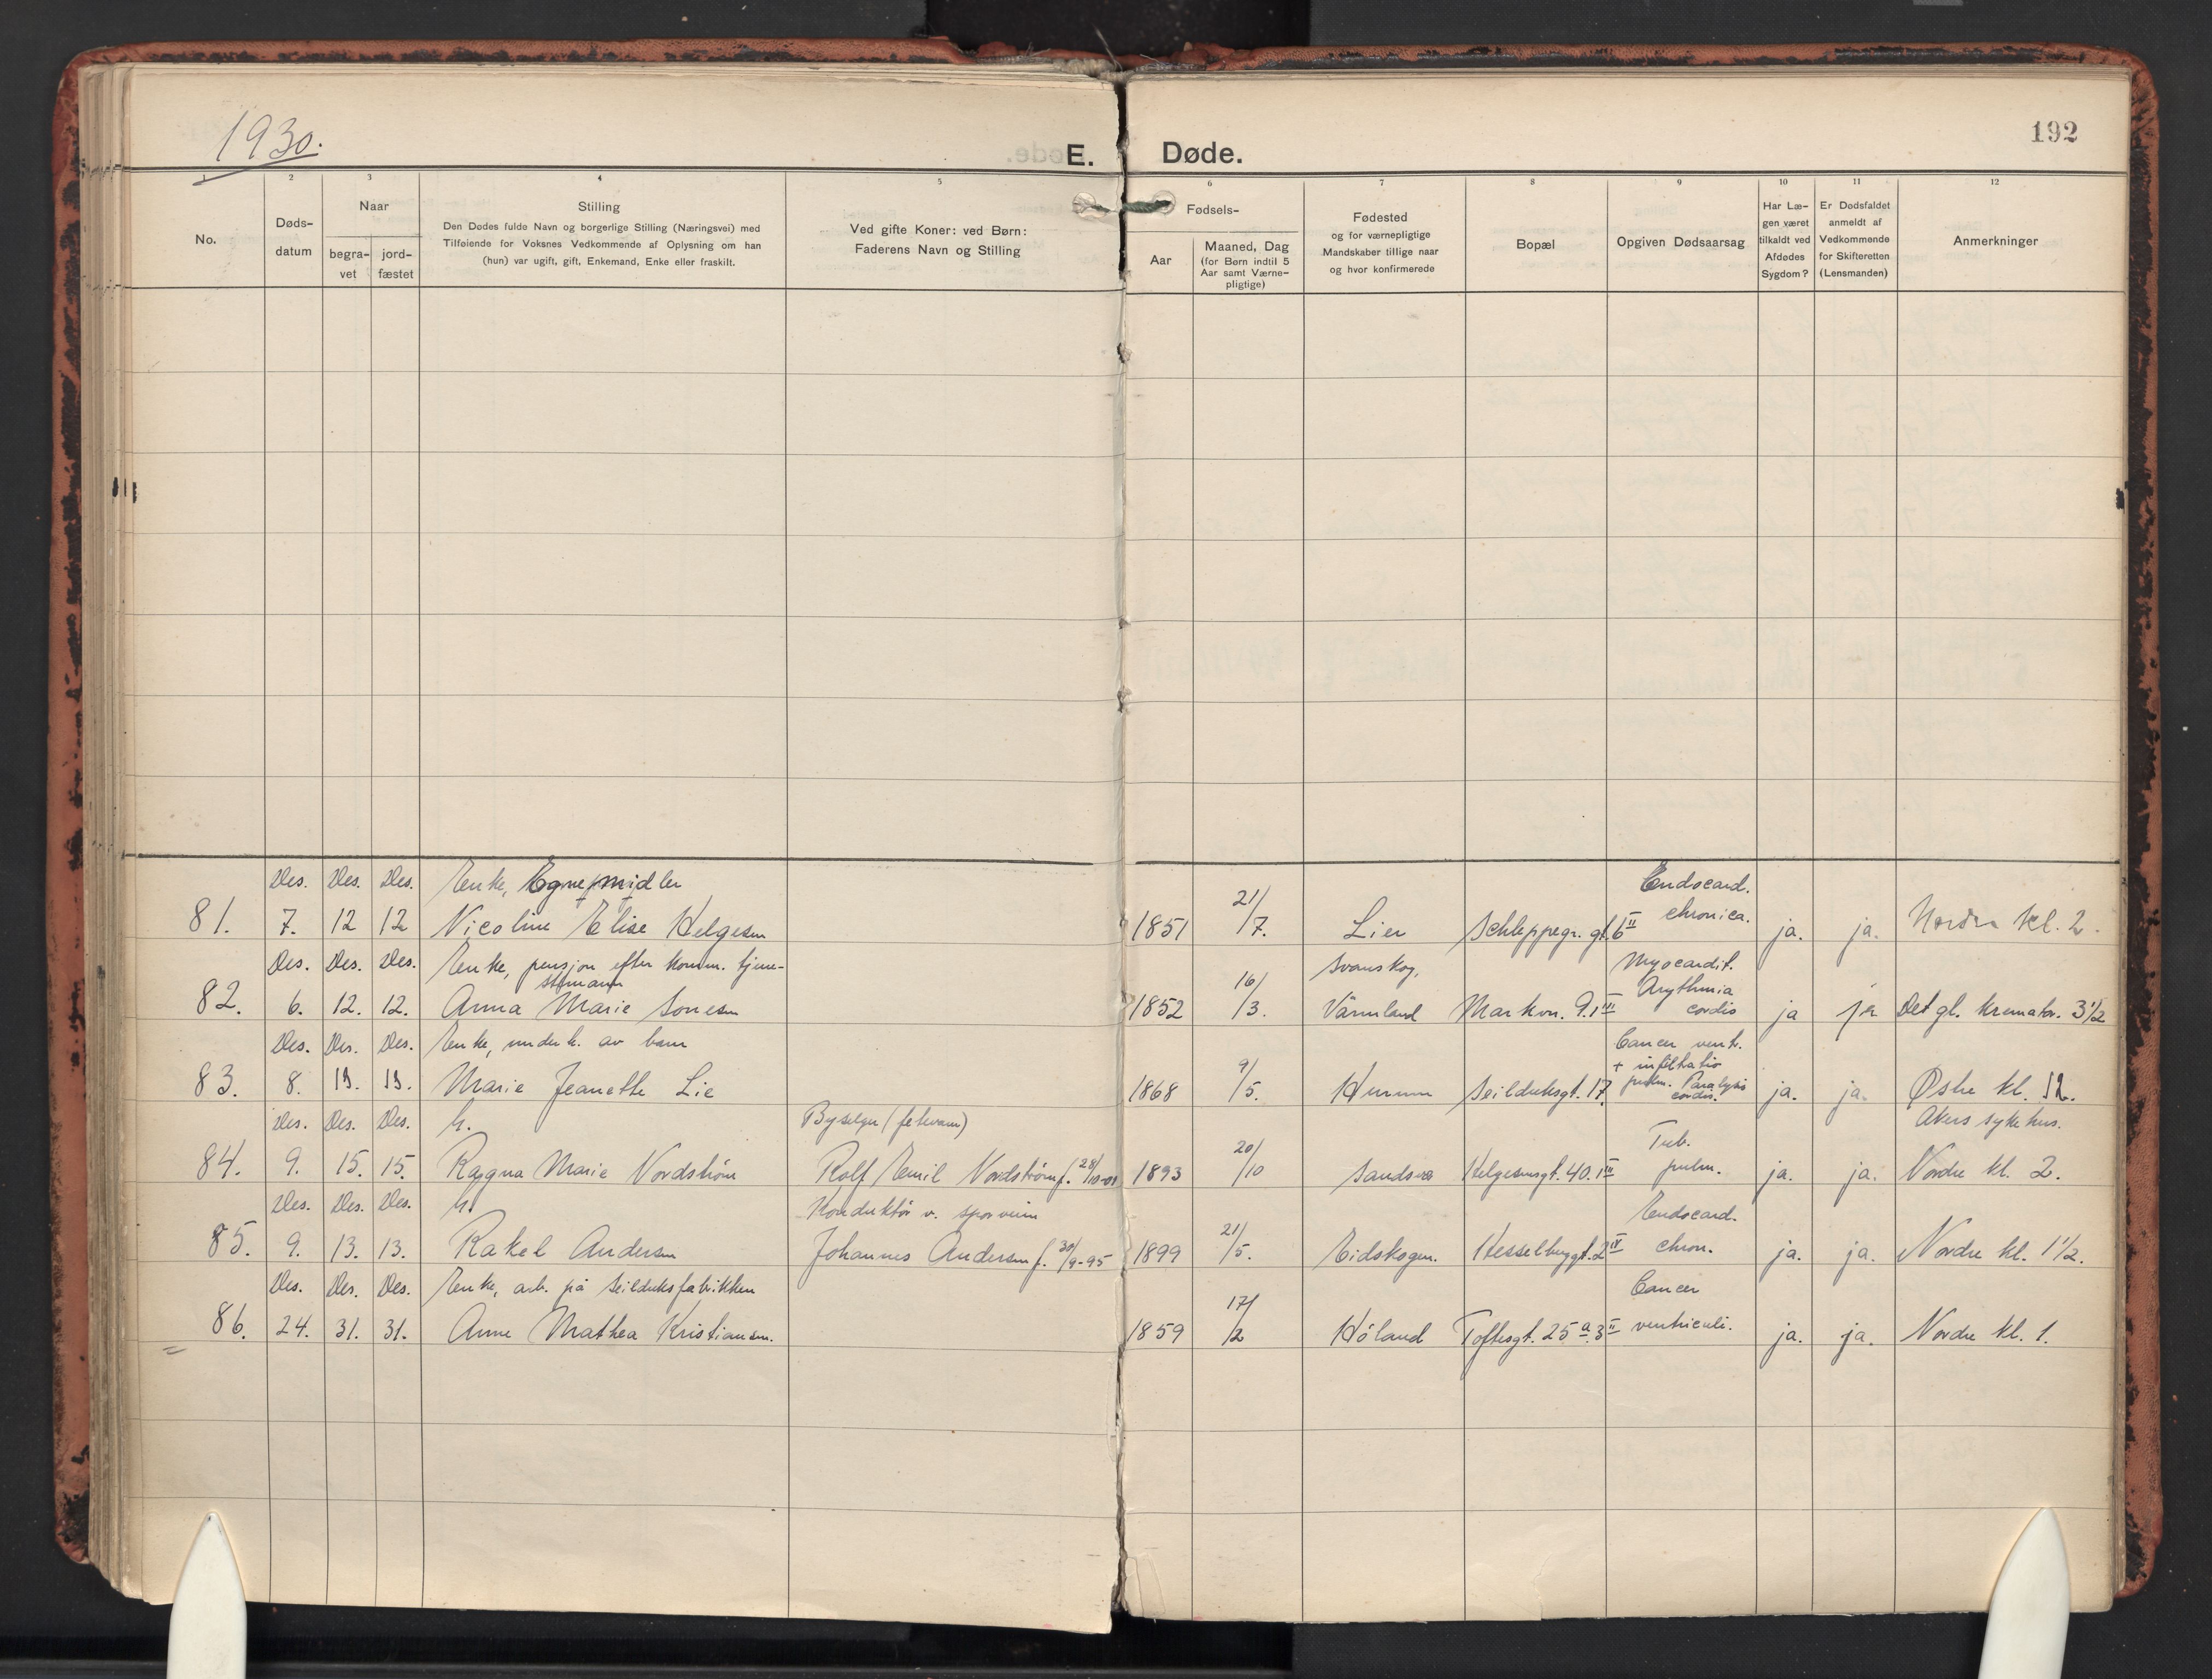 1930.
E. Døde.
192
1 2 3 4 5 6 7 8 9 10 11 12
No.
Døds-
datum
Naar
begra-
vet
jord-
fæstet
Stilling
Den Dødes fulde Navn og borgerlige Stilling (Næringsvei) med
Tilføiende for Voksnes Vedkommende af Oplysning om han
(hun) var ugift, gift, Enkemand, Enke eller fraskilt.
Ved gifte Koner: ved Børn:
Faderens Navn og Stilling
Fødsels-
Aar
Maaned, Dag
(for Børn indtil 5
Aar samt Værne-
pligtige)
Fødested
og for værnepligtige
Mandskaber tillige naar
og hvor konfirmerede
Bopæl
Opgiven Dødsaarsag
Har Læ-
gen været
tilkaldt ved
Afdødes
Sygdom?
Er Dødsfaldet
anmeldt af
Vedkommende
for Skifteretten
(Lensmanden)
Anmerkninger
Des. Des. Des. Enke, Egne midler Endocard.
81. 7. 12 12 Nicoline Elise Helgesen 1851 21/7. Lier Schleppegr. gt. 6 II chronica. ja. ja. Nordre kl. 2.
Des. Des. Des. Enke, pensjon efter komm. tjene- Svanskog, Myocardit.
stemann Arythmia
82. 6. 12. 12. Anna Marie Sonesen 1852 16/3. Värmland Markvn. 9.1 III cordis ja ja Det gl. kremator. 3 1/2
Des. Des. Des. Enke, underh. av barn Cancer ventr.
+ infiltratio
83. 8. 13. 13. Marie Jeanette Lie 1868 9/5. Hurum Seilduksgt. 17 pulm. Paralysis ja. ja. Østre kl. 12.
cordis.
Des. Des. Des. G. Byselger (fetevarer) Tub. Akers sykehus.
84. 9. 15. 15. Ragna Marie Nordstrøm Rolf Emil Nordstrøm f. 28/10-01 1893 20/10 Sandsvær Helgesensgt. 40.1 III pulm. ja. ja. Nordre kl. 2.
Des. Des. Des. G. Konduktør v. sporveien Endocard.
85. 9. 13. 13. Rakel Andersen Johannes Andersen f. 30/9-95 1899 21/5. Eidskogen. Hesselberggt. 2 IV chron. ja. ja. Nordre kl. 1 1/2.
Des. Des. Des. Enke, arb. på Seilduksfabrikken Cancer
86. 24. 31. 31. Anne Mathea Kristiansen. 1859 17/2 Höland Toftesgt. 25 a. 3 II ventriculi. ja. ja. Nordre kl. 1.